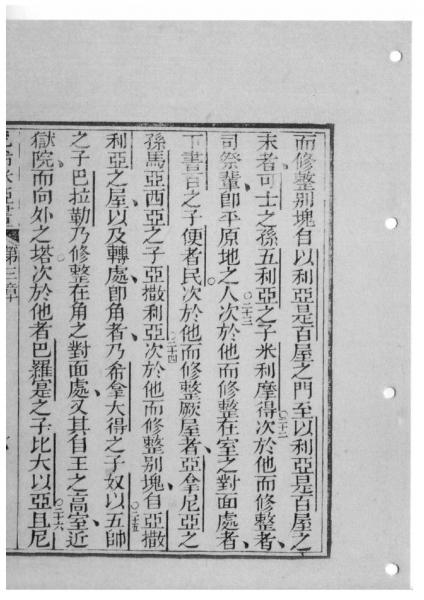 而修整别塊自以利亞是百屋之門至以利亞是百屋之
末者可士之孫五利亞之子米利摩得次於他而修整者
○二十二
司祭輩即平原地之人次於他而修整在室之對面處者
○二十三
之子便者民次於他而修整厥屋者亞拿尼亞之
孫馬亞西亞之子亞撒利亞次於他而修整别塊自亞撒
○二十四
利亞之屋以及轉處即角者乃希拿大得之子奴以五帥
○二十五
之子巴拉勒乃修整在角之對面處又其自王之高室近
獄院而向外之塔次於他者巴羅是之子比大以亞且尼
○二十六
第三章